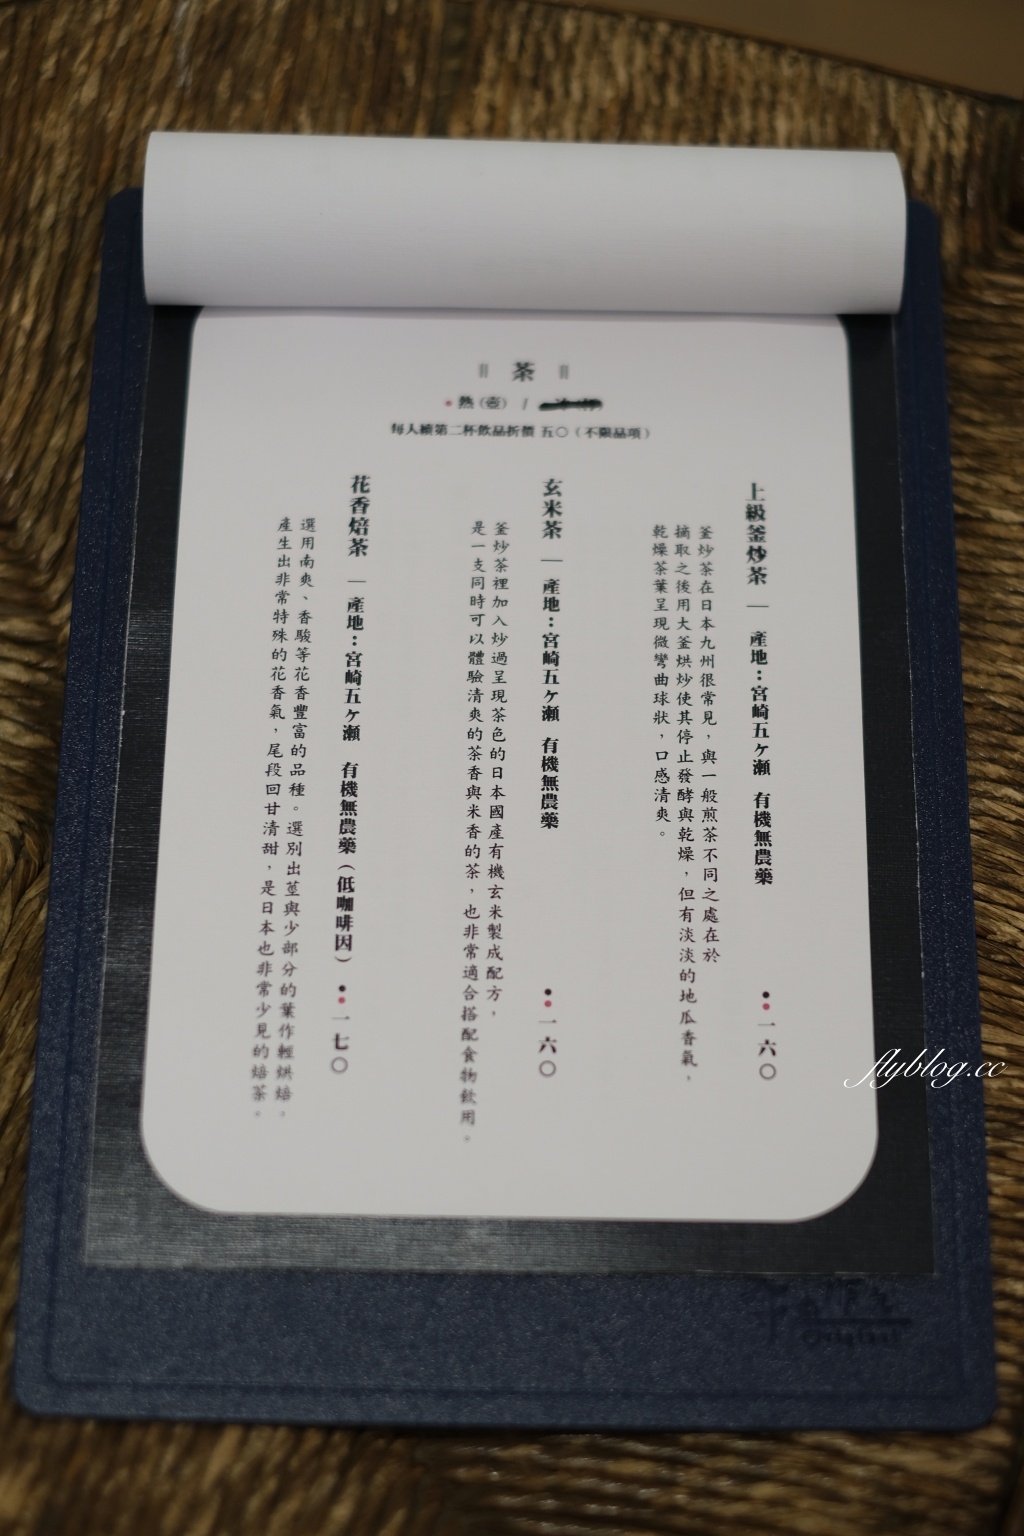 茶
熱(壺) /
每人續第二杯飲品折價 五〇(不限品項)
上級釜炒茶 — 產地:宮崎五ヶ瀨 有機無農藥 一六〇
釜炒茶在日本九州很常見,與一般煎茶不同之處在於
摘取之後用大釜烘炒使其停止發酵與乾燥,但有淡淡的地瓜香氣,
乾燥茶葉呈現微彎曲球狀,口感清爽。
玄米茶 — 產地:宮崎五ヶ瀨 有機無農藥 一六〇
釜炒茶裡加入炒過呈現茶色的日本國產有機玄米製成配方,
是一支同時可以體驗清爽的茶香與米香的茶,也非常適合搭配食物飲用。
花香焙茶 — 產地:宮崎五ヶ瀨 有機無農藥(低咖啡因) 一七〇
選用南爽、香駿等花香豐富的品種。選別出莖與少部分的葉作輕烘焙,
產生出非常特殊的花香氣,尾段回甘清甜,是日本也非常少見的焙茶。
flyblog.cc